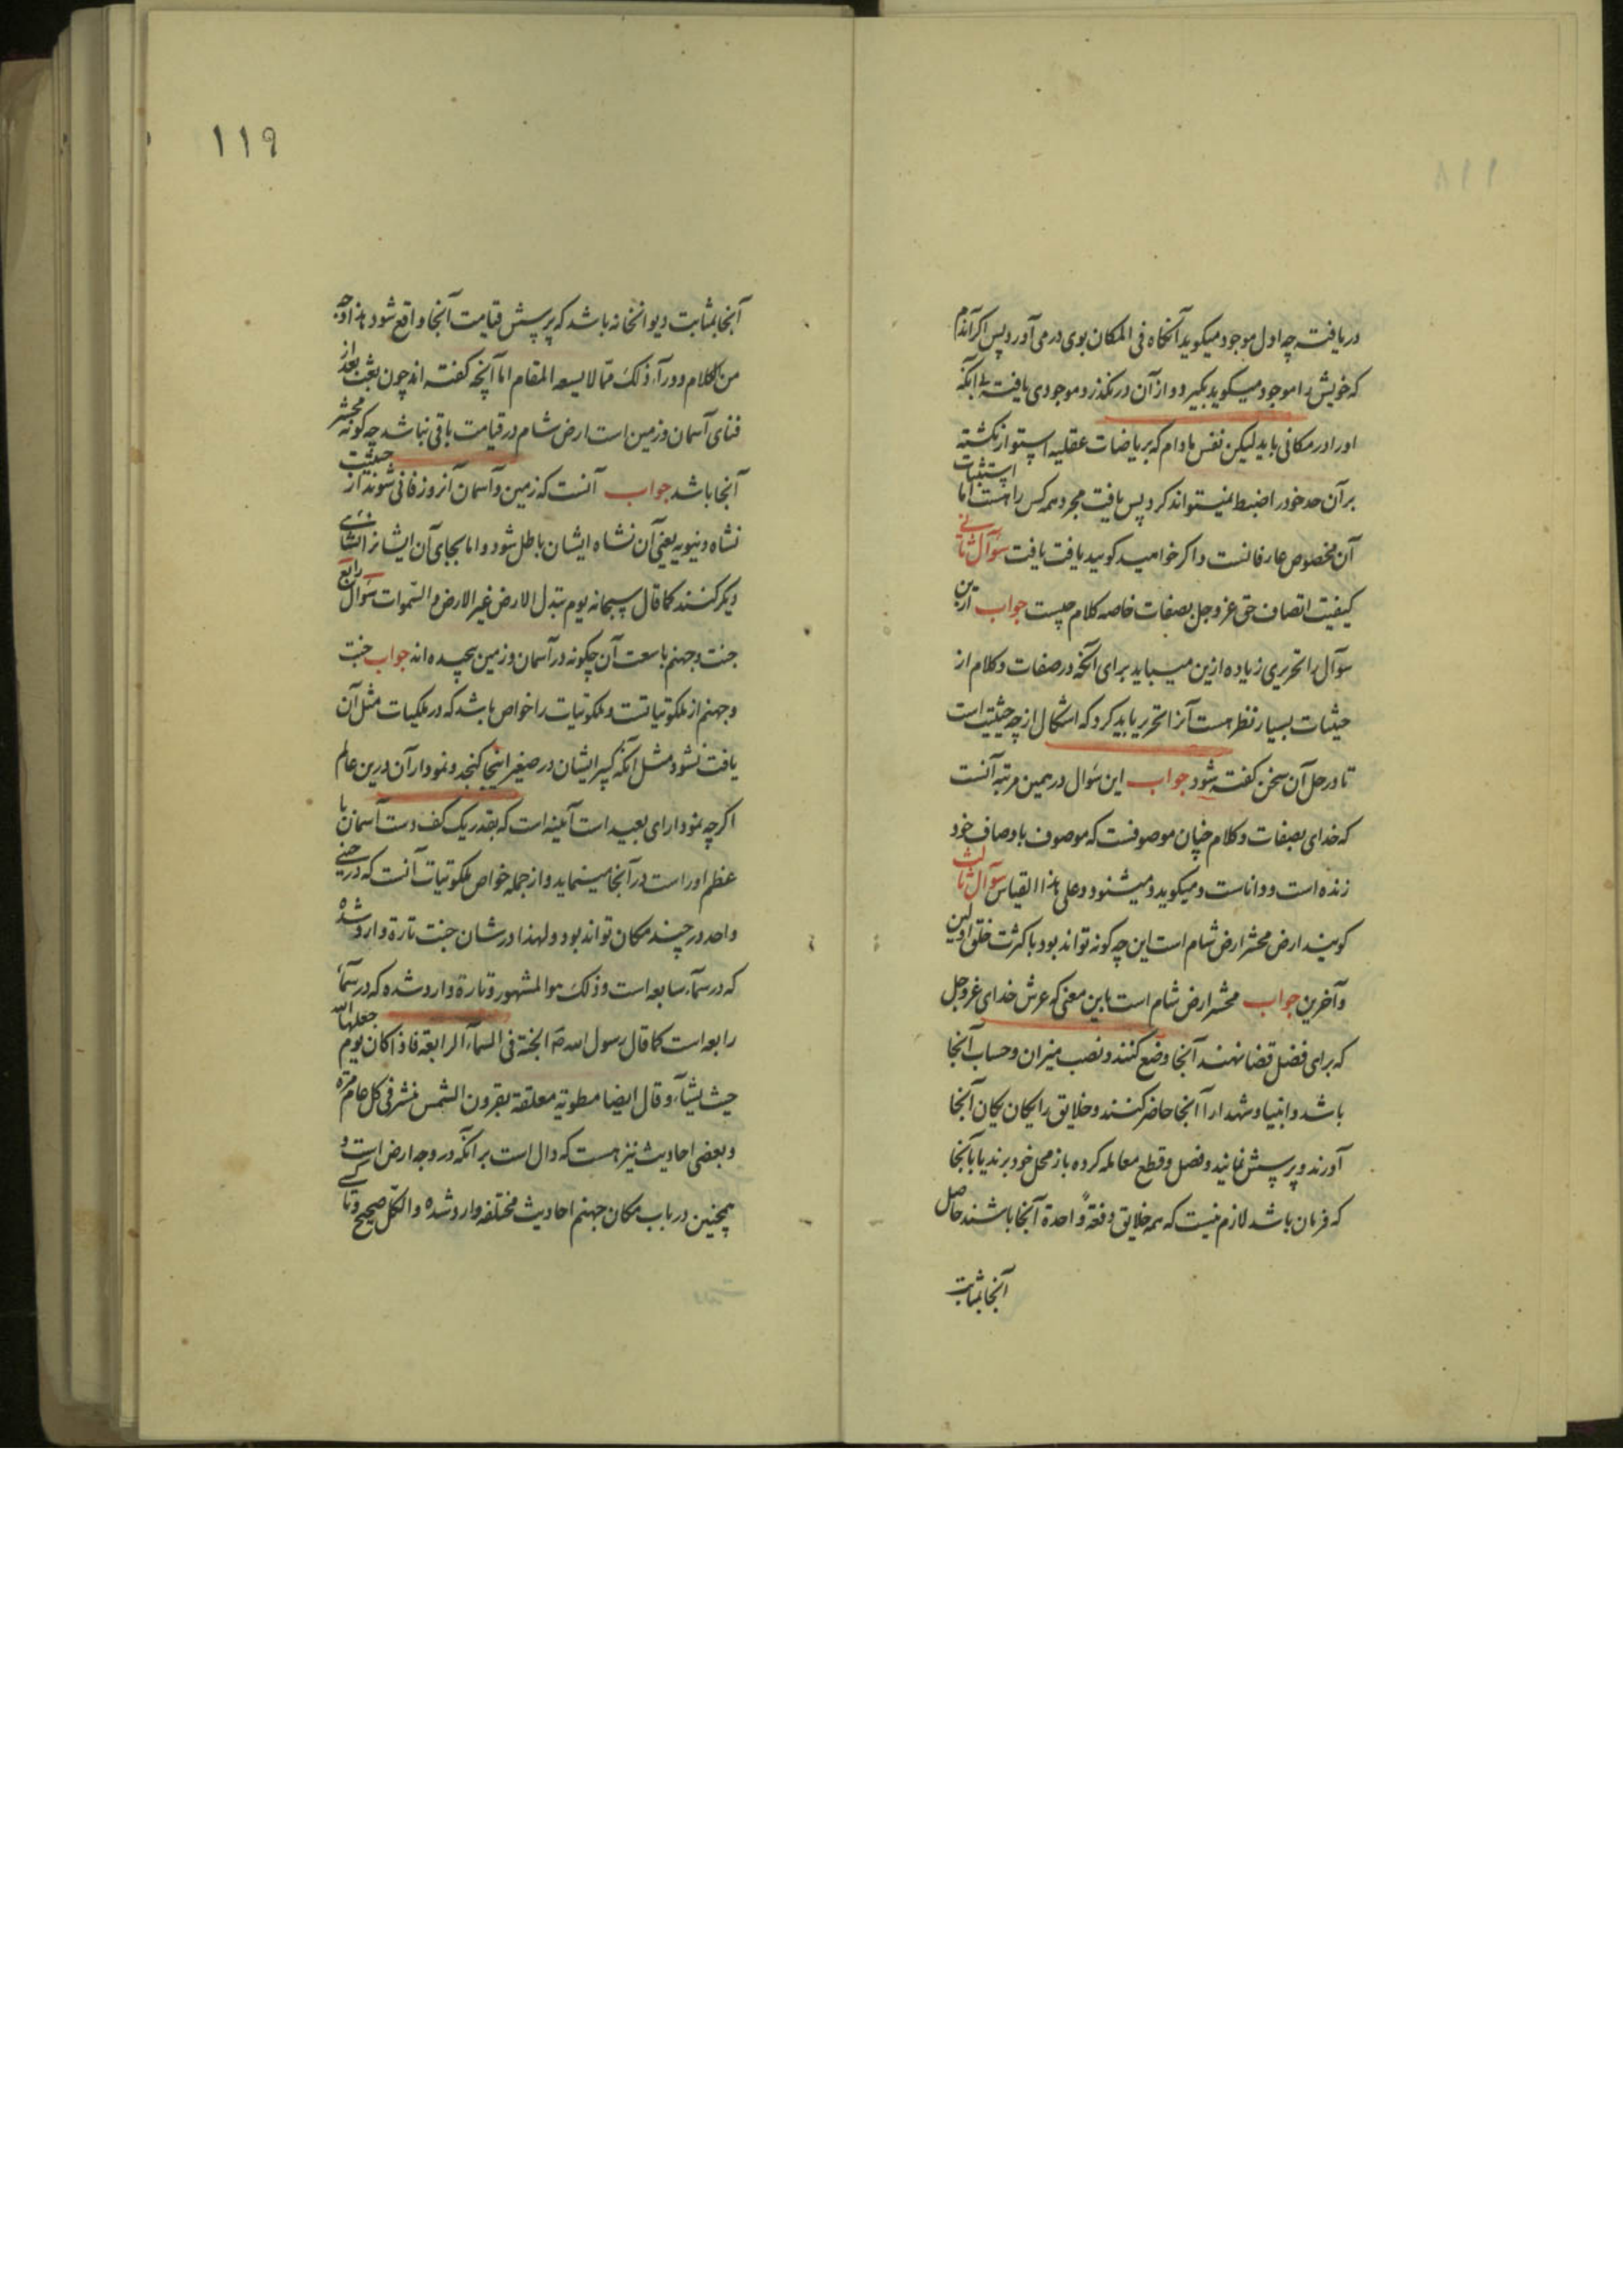 ۱۱۸
دریافته چه اول موجود میکوید آنکاه فی المکان بوی درمی آورد پس اکر آندم
که خویش را موجود میکوید بکیرد و از آن درنکذرد موجودی یافته بی آنکه
او را در مکانی یابد لیکن نفس مادام که بریاضات عقلیه استوار نکشته
بر آن حد خود را ضبط نمیتواند کرد پس یافت مجرد همه کس را هست اما استثبات
آن مخصوص عارفانست و اکر خواهید کویید یافت یافت سؤال ثانی
کیفیت اتصاف حق عز وجل بصفات خاصه کلام چیست جواب این
سؤال را تحریری زیاده ازین میباید برای آنکه در صفات و کلام از
حیثیات بسیار نظر هست آنرا تحریر باید کرد که اشکال از چه حیثیت است
تا در حل آن سخن کفته شود جواب این سؤال در همین مرتبه آنست
که خدای بصفات و کلام چنان موصوفست که موصوف باوصاف خود
زنده است و داناست و میکوید و میشنود و علی هذا القیاس سؤال ثالث
کویند ارض محشر ارض شام است این چه کونه تواند بود با کثرت خلق اولین
و آخرین جواب محشر ارض شام است باین معنی که عرش خدای عز وجل
که برای فصل قضا نهند آنجا وضع کنند و نصب میزان و حساب آنجا
باشد و انبیا و شهدا را آنجا حاضر کنند و خلایق را یکان یکان آنجا
آورند و پرسش نمایند و فصل و قطع معامله کرده باز محل خود برند یا بآنجا
که فرمان باشد لازم نیست که همه خلایق دفعة واحدة آنجا باشند حاصل
آنجا بمثابت
۱۱۹
آنجا بمثابت دیوانخانه باشد که پرسش قیامت آنجا واقع شود هذا وجه
من الکلام و ورآء ذلک مما لا یسعه المقام اما آنچه کفته اند چون بعث بعد از
فنای آسمان و زمین است ارض شام در قیامت باقی نباشد چه کونه محشر
آنجا باشد جواب آنست که زمین و آسمان آنروز فانی شوند از حیثیت
نشاه دنیویه یعنی آن نشاه ایشان باطل شود و اما بجای آن ایشانرا انشای
دیکر کنند کما قال سبحانه یوم تبدل الارض غیر الارض و السموات سؤال رابع
جنت و جهنم با سعت آن چکونه در آسمان و زمین پیچیده اند جواب جنت
و جهنم از ملکوتیاتست و ملکوتیات را خواص باشد که در ملکیات مثل آن
یافت نشود مثل آنکه کبیر ایشان در صغیر اینجا کنجد و نمودار آن درین عالم
اکرچه نمودارای بعید است آئینه است که بقدر یک کف دست آسمان با
عظم او راست در آنجا مینماید و از جمله خواص ملکوتیات آنست که در حینی
واحد در چند مکان تواند بود و لهذا در شان جنت تارة وارد شده
که در سمآء سابعه است و ذلک هو المشهور و تارة وارد شده که در سمآء
رابعه است کما قال رسول الله ص الجنة فی السمآء الرابعة فاذا کان یوم جعلها الله
حیث یشآء و قال ایضا مطویة معلقة بقرون الشمس تنشر فی کل عام مرة
و بعضی احادیث نیز هست که دال است بر آنکه در وجه ارض است و
همچنین در باب مکان جهنم احادیث مختلفه وارد شده و الکل صحیح و تا کسی